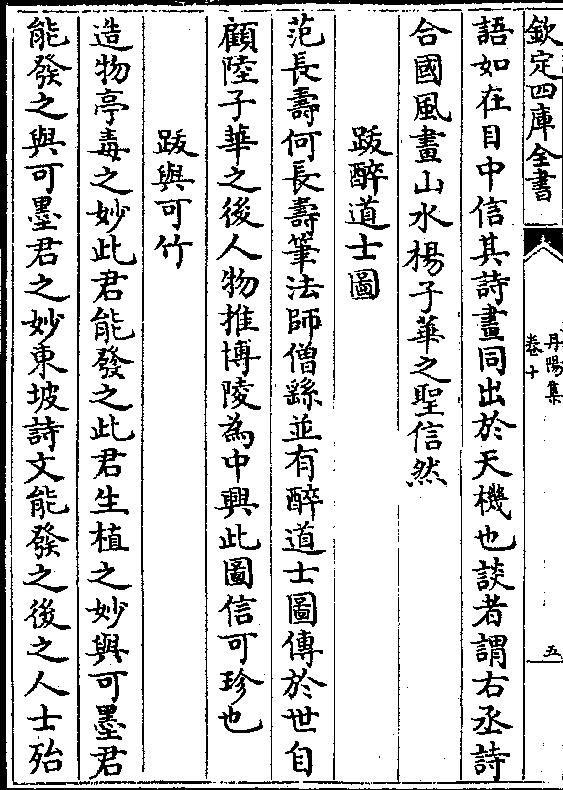 欽定四庫全書
丹陽集
卷十
五
語如在目中信其詩畫同出於天機也談者謂右丞詩
合國風畫山水楊子華之聖信然
跋醉道士圖
范長壽何長壽筆法師僧繇並有醉道士圖傳於世自
顧陸子華之後人物推博陵為中興此圖信可珍也
跋與可竹
造物亭毒之妙此君能發之此君生植之妙與可墨君
能發之與可墨君之妙東坡詩文能發之後之人士殆